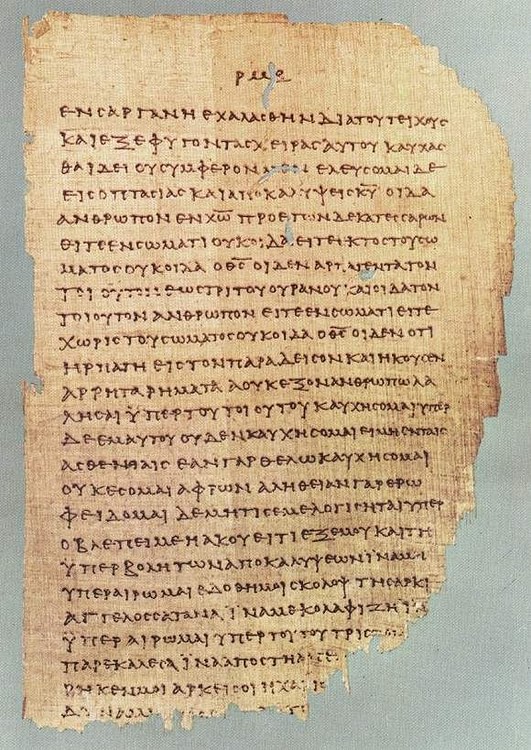 ΕΝ ϹΑΡΓΑΝΗ ΕΧΑΛΑϹΘΗΝ ΔΙΑ ΤΟΥ ΤΕΙΧΟΥϹ
ΚΑΙ ΕΞΕΦΥΓΟΝ ΤΑϹ ΧΕΙΡΑϹ ΑΥΤΟΥ ΚΑΥΧΑϹ
ΘΑΙ ΔΕΙ ΟΥ ϹΥΜΦΕΡΟΝ ΕΛΕΥϹΟΜΑΙ ΔΕ
ΕΙϹ ΟΠΤΑϹΙΑϹ ΚΑΙ ΑΠΟΚΑΛΥΨΕΙϹ Κ̅Υ̅ ΟΙΔΑ
ΑΝΘΡΩΠΟΝ ΕΝ Χ̅Ω̅ ΠΡΟ ΕΤΩΝ ΔΕΚΑΤΕϹϹΑΡΩΝ
ΕΙΤΕ ΕΝ ϹΩΜΑΤΙ ΟΥΚ ΟΙΔΑ ΕΙΤΕ ΕΚΤΟϹ ΤΟΥ ϹΩ
ΜΑΤΟϹ ΟΥΚ ΟΙΔΑ Ο Θ̅Ϲ̅ ΟΙΔΕΝ ΑΡΠΑΓΕΝΤΑ ΤΟΝ
ΤΟΙΟΥΤΟΝ ΕΩϹ ΤΡΙΤΟΥ ΟΥΡΑΝΟΥ ΚΑΙ ΟΙΔΑ ΤΟΝ
ΤΟΙΟΥΤΟΝ ΑΝΘΡΩΠΟΝ ΕΙΤΕ ΕΝ ϹΩΜΑΤΙ ΕΙΤΕ
ΧΩΡΙϹ ΤΟΥ ϹΩΜΑΤΟϹ ΟΥΚ ΟΙΔΑ Ο Θ̅Ϲ̅ ΟΙΔΕΝ ΟΤΙ
ΗΡΠΑΓΗ ΕΙϹ ΤΟΝ ΠΑΡΑΔΕΙϹΟΝ ΚΑΙ ΗΚΟΥϹΕΝ
ΑΡΡΗΤΑ ΡΗΜΑΤΑ Α ΟΥΚ ΕΞΟΝ ΑΝΘΡΩΠΩ ΛΑ
ΛΗϹΑΙ ΫΠΕΡ ΤΟΥ ΤΟΙΟΥΤΟΥ ΚΑΥΧΗϹΟΜΑΙ ΥΠΕΡ
ΔΕ ΕΜΑΥΤΟΥ ΟΥΔΕΝ ΚΑΥΧΗϹΟΜΑΙ ΕΙ ΜΗ ΕΝ ΤΑΙϹ
ΑϹΘΕΝΕΙΑΙϹ ΕΑΝ ΓΑΡ ΘΕΛΩ ΚΑΥΧΗϹΟΜΑΙ
ΟΥΚ ΕϹΟΜΑΙ ΑΦΡΩΝ ΑΛΗΘΕΙΑΝ ΓΑΡ ΕΡΩ
ΦΕΙΔΟΜΑΙ ΔΕ ΜΗ ΤΙϹ ΕΜΕ ΛΟΓΙϹΗΤΑΙ ΥΠΕΡ
Ο ΒΛΕΠΕΙ ΜΕ Η ΑΚΟΥΕΙ ΤΙ ΕΞ ΕΜΟΥ ΚΑΙ ΤΗ
ΫΠΕΡΒΟΛΗ ΤΩΝ ΑΠΟΚΑΛΥΨΕΩΝ ΙΝΑ ΜΗ
ΥΠΕΡΑΙΡΩΜΑΙ ΕΔΟΘΗ ΜΟΙ ϹΚΟΛΟΨ ΤΗ ϹΑΡΚΙ
ΑΓΓΕΛΟϹ ϹΑΤΑΝΑ ΪΝΑ ΜΕ ΚΟΛΑΦΙΖΗ ΪΝ
ΫΠΕΡΑΙΡΩΜΑΙ ΥΠΕΡ ΤΟΥΤΟΥ ΤΡΙϹ
ΠΑΡΕΚΑΛΕϹΑ ΪΝΑ ΑΠΟΣΤΗ
ΚΕΝ ΜΟΙ ΑΡΚΕΙ ϹΟΙ Η ΧΑΡΙϹ